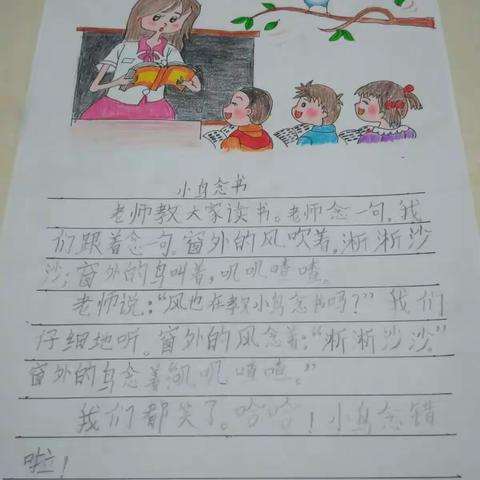 小鸟念书
老师教大家读书。老师念一句,我
们跟着念一句。窗外的风吹着,淅淅沙
沙;窗外的鸟叫着,叽叽喳喳。
老师说:“风也在教小鸟念书吗?”我们
仔细地听。窗外的风念着:“淅淅沙沙”
窗外的鸟念着叽叽喳喳。”
我们都笑了。哈哈!小鸟念错
啦!